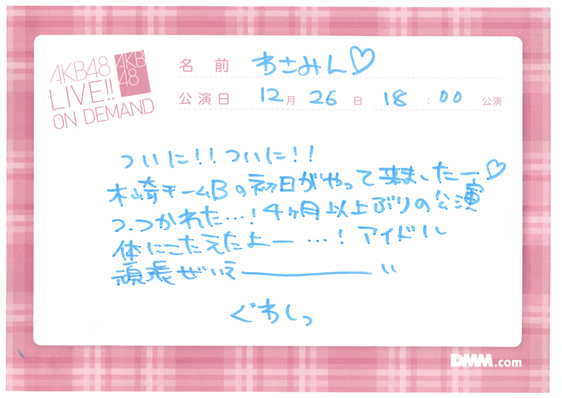 AKB48
LIVE!!
ON DEMAND
AKB
48
名前 わさみん♡
公演日 12月26日 18:00公演
ついに!!ついに!!
木﨑チームBの初日がやって来ましたー♡
つ、つかれた…!4ヶ月以上ぶりの公演
体にこたえたよー…!アイドル
頑張ぜいえ――い
ぐわしっ
DMM.com